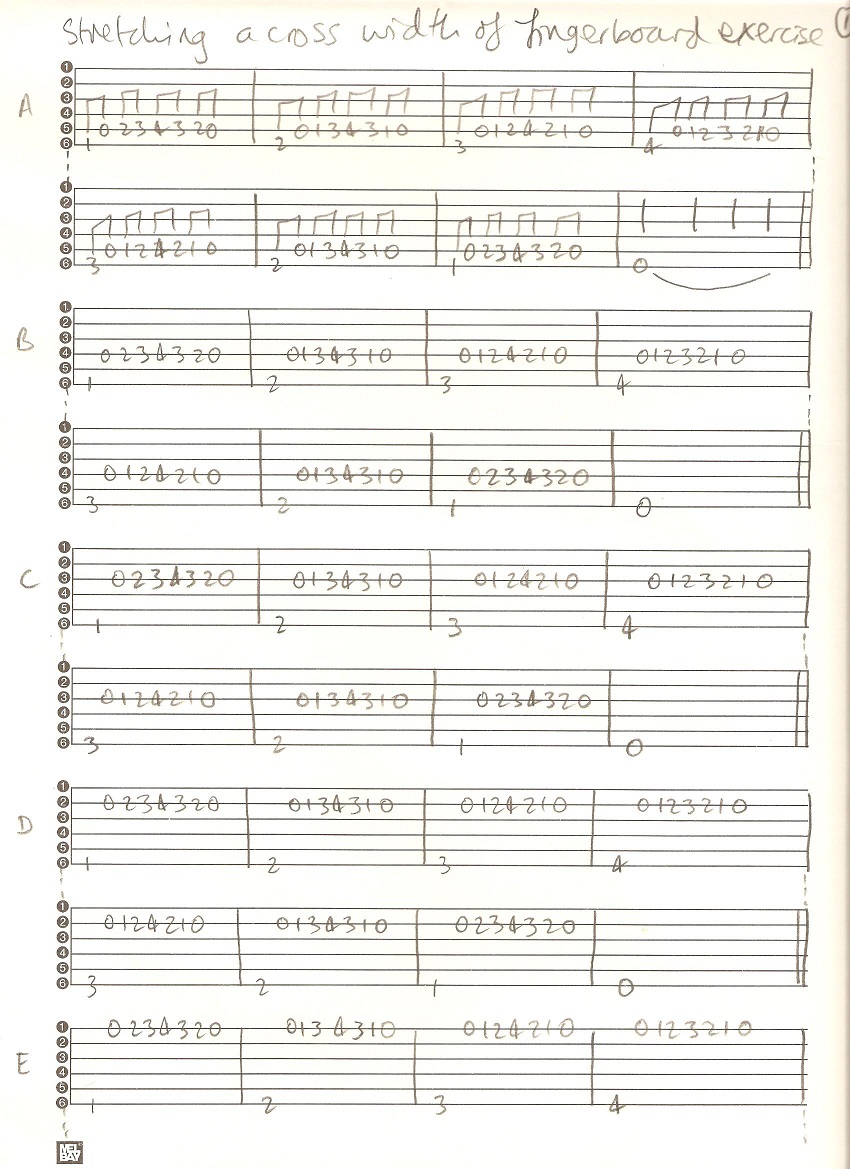 Stretching across width of fingerboard exercise 1
A
1 2 3 4 5 6
0 2 3 4 3 2 0 0 1 3 4 3 1 0 0 1 2 4 2 1 0 0 1 2 3 2 1 0
1 2 3 4
1 2 3 4 5 6
0 1 2 4 2 1 0 0 1 3 4 3 1 0 0 2 3 4 3 2 0
3 2 1 0
B
1 2 3 4 5 6
0 2 3 4 3 2 0 0 1 3 4 3 1 0 0 1 2 4 2 1 0 0 1 2 3 2 1 0
1 2 3 4
1 2 3 4 5 6
0 1 2 4 2 1 0 0 1 3 4 3 1 0 0 2 3 4 3 2 0
3 2 1 0
C
1 2 3 4 5 6
0 2 3 4 3 2 0 0 1 3 4 3 1 0 0 1 2 4 2 1 0 0 1 2 3 2 1 0
1 2 3 4
1 2 3 4 5 6
0 1 2 4 2 1 0 0 1 3 4 3 1 0 0 2 3 4 3 2 0
3 2 1 0
D
1 2 3 4 5 6
0 2 3 4 3 2 0 0 1 3 4 3 1 0 0 1 2 4 2 1 0 0 1 2 3 2 1 0
1 2 3 4
1 2 3 4 5 6
0 1 2 4 2 1 0 0 1 3 4 3 1 0 0 2 3 4 3 2 0
3 2 1 0
E
1 2 3 4 5 6
0 2 3 4 3 2 0 0 1 3 4 3 1 0 0 1 2 4 2 1 0 0 1 2 3 2 1 0
1 2 3 4
MEL BAY